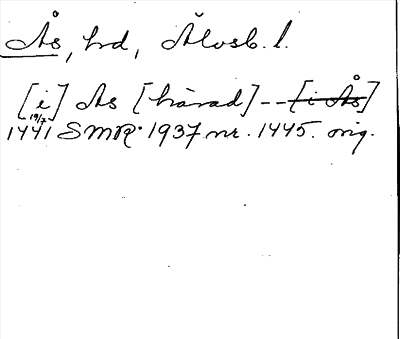 Ås, hd, Älvsb. l.
[i] As [härad] -- [i Ås]
19/7
1441 SMR. 1937 nr. 1445. orig.